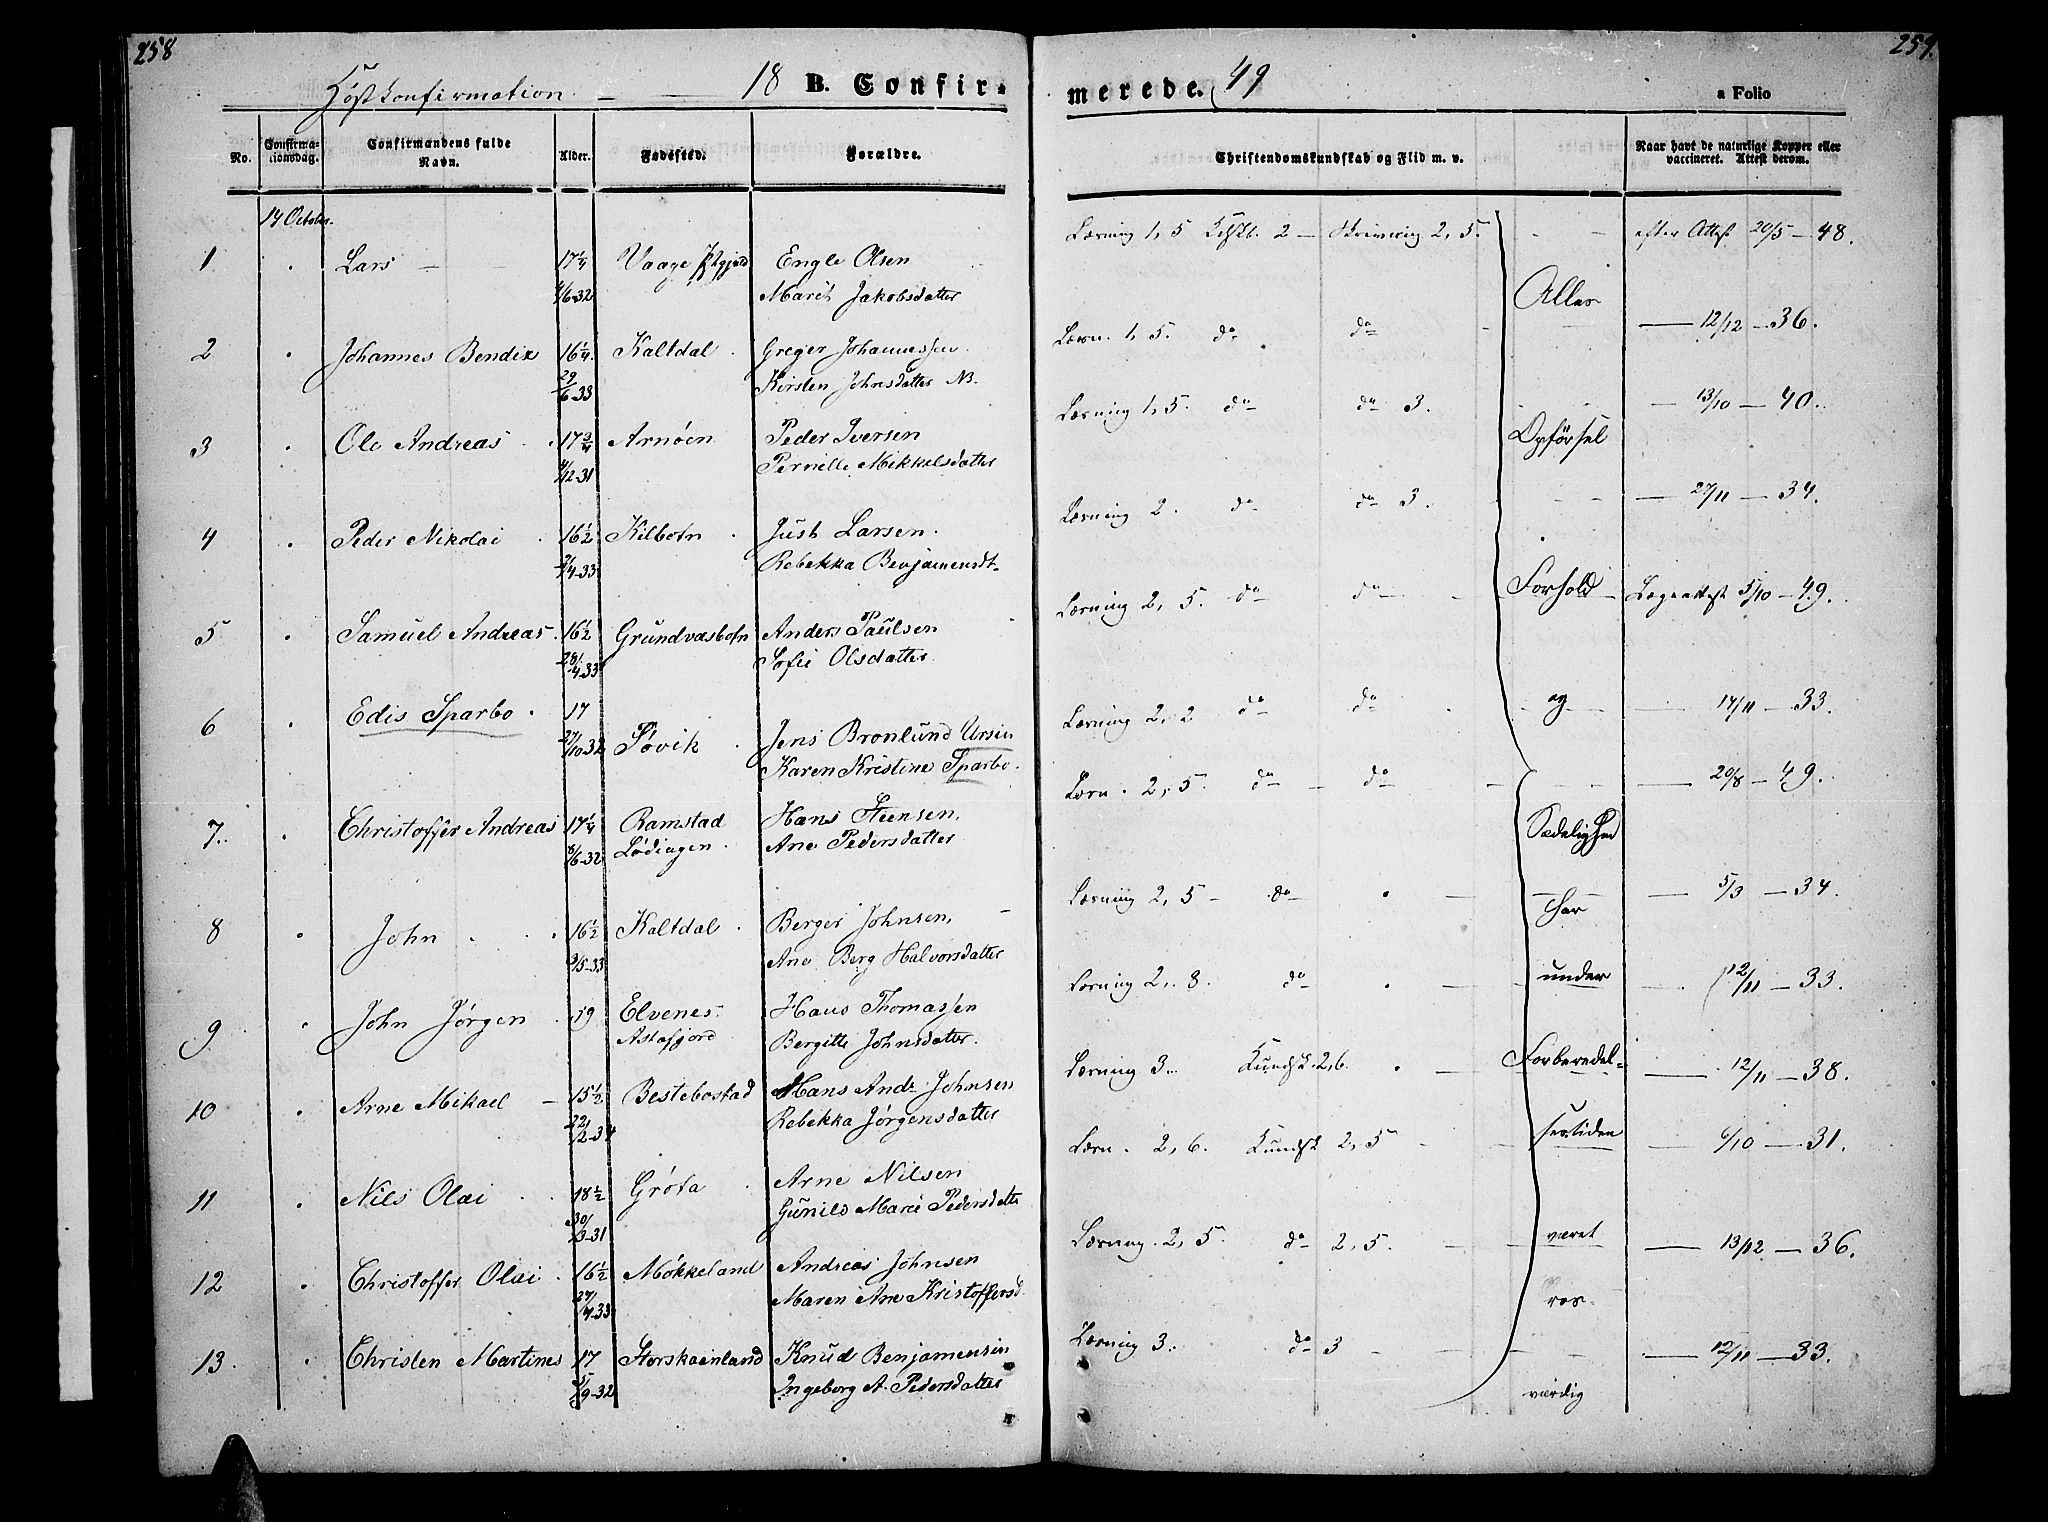 258
259.
Höstkonfirmation. — 18 B. Confirmerede. 49
a Folio
No.
Confirmationsdag.
Confirmandens fulde Navn.
Alder.
Fødested.
Forældre.
Christendomskundskab og Flid m. v.
Naar havt de naturlige Kopper eller vaccineret. Attest derom.
14 October.
1 Lars 17 1/4 Vaage Engle Olsen Lærning 1,5 2 — Skrivning 2,5. efter Attest 20/5 — 48.
/6-32 Marit Jakobsdatter
2 Johannes Bendix 16 1/4 Kaltdal Greger Johannessen Lærn. 1,5. do do — 12/12 — 36.
29/6-33 Kirsten Johnsdatter
3 Ole Andreas 17 3/4 Arnöen Peder Iversen Lærning 1,5. do do 3. — 13/10 — 40.
/12-31 Pernille Mikkelsdatter
4 Peder Nikolai 16 1/2 Kilbotn Just Larsen. Lærning 2. do do 3. — 27/11 — 34.
/4-33 Rebekka Benjamensdt.
5 Samuel Andreas 16 1/2 Grundvasbotn Anders Paulsen Lærning 2,5. do do Lægeattest 5/10 — 49.
28/4-33 Sofie Olsdatter
6 Edis Sparbo 17 Søvik Jens Bronlund Ursin Lærning 2,2 do do — 17/11 — 33.
27/10-32 Karen Kristine Sparbo.
7. Christoffer Andreas 17 1/4 Ramstad Hans Steensen, Lærn. 2,5. do do — 20/8 — 49.
8/6-32 Lödingen Ane Pedersdatter
8 John 16 1/2 Kaltdal Berger Johnsen, Lærning 2,5 do — 5/3 — 34.
/5-33 Ane Berg Halvorsdatter
9 John Jörgen 19 Elvenes Hans Thomassen Lærning 2,8. do — 12/11 — 33.
Astafjord Bergitte Johnsdatter.
10 Arne Mikael 15 1/2 Bestebostad Hans Andr. Johnsen Lærning 3. Kundsk. 2,6. — 12/11 — 38.
22/2-34 Rebekka Jörgensdatter
11 Nils Olai 18 1/2 Gröta Arne Nilsen Lærn. 2,6. Kundsk 2,5 — 6/10 — 31.
30/3-31 Gunild Marie Pedersdatte
12 Christoffer Olai 16 1/2 Mökkeland Andreas Johnsen Lærning. 2,5. do 2,5. — 13/12 — 36.
27/4-33 Maren Ane Kristoffersd.
13 Christen Martines 17 Storskaenland Knud Benjamensen Lærning 3. do 3 — 12/11 — 33.
5/9-32 Ingeborg A. Pedersdatter
Alles
Opförsel
Forhold
og
Sædelighed
har
under
Forberedel-
sestiden
været
ros-
værdig